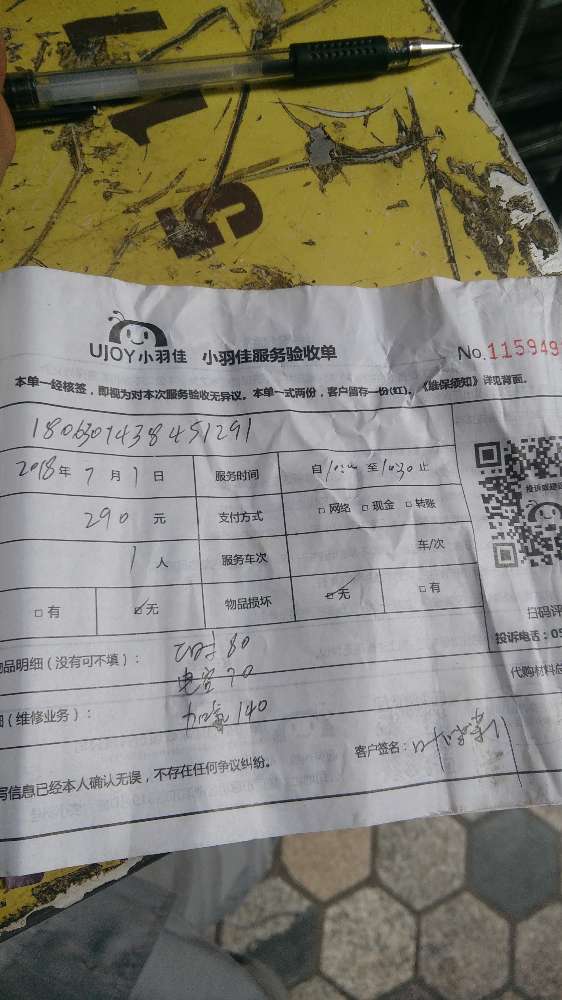 15
UJOY小羽佳 小羽佳服务验收单 No.115949
本单一经核签，即视为对本次服务验收无异议。本单一式两份，客户留存一份(红)。《维保须知》详见背面。
1806301438451291
2018年 7月 1日 服务时间 自10:00至10:30止
290 元 支付方式 □网络 □现金 □转账
1人 服务车次 车/次
□有 ☑无 物品损坏 ☑无 □有
投诉或建
扫码评
品明细（没有可不填）： 80 投诉电话：05
70 代购材料总
（维修业务）： 140
客户签名：
写信息已经本人确认无误，不存在任何争议纠纷。